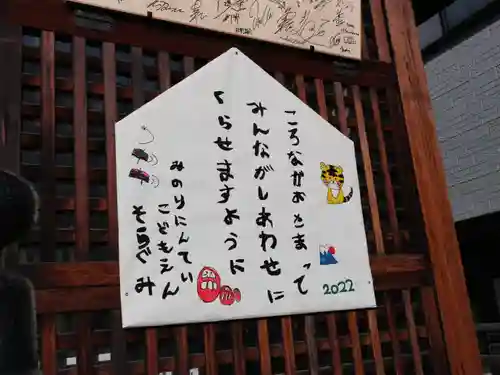 ころながとまって
みんながしあわせに
くらせますように
みのりにんてい
こどもえん
そらぐみ
2022